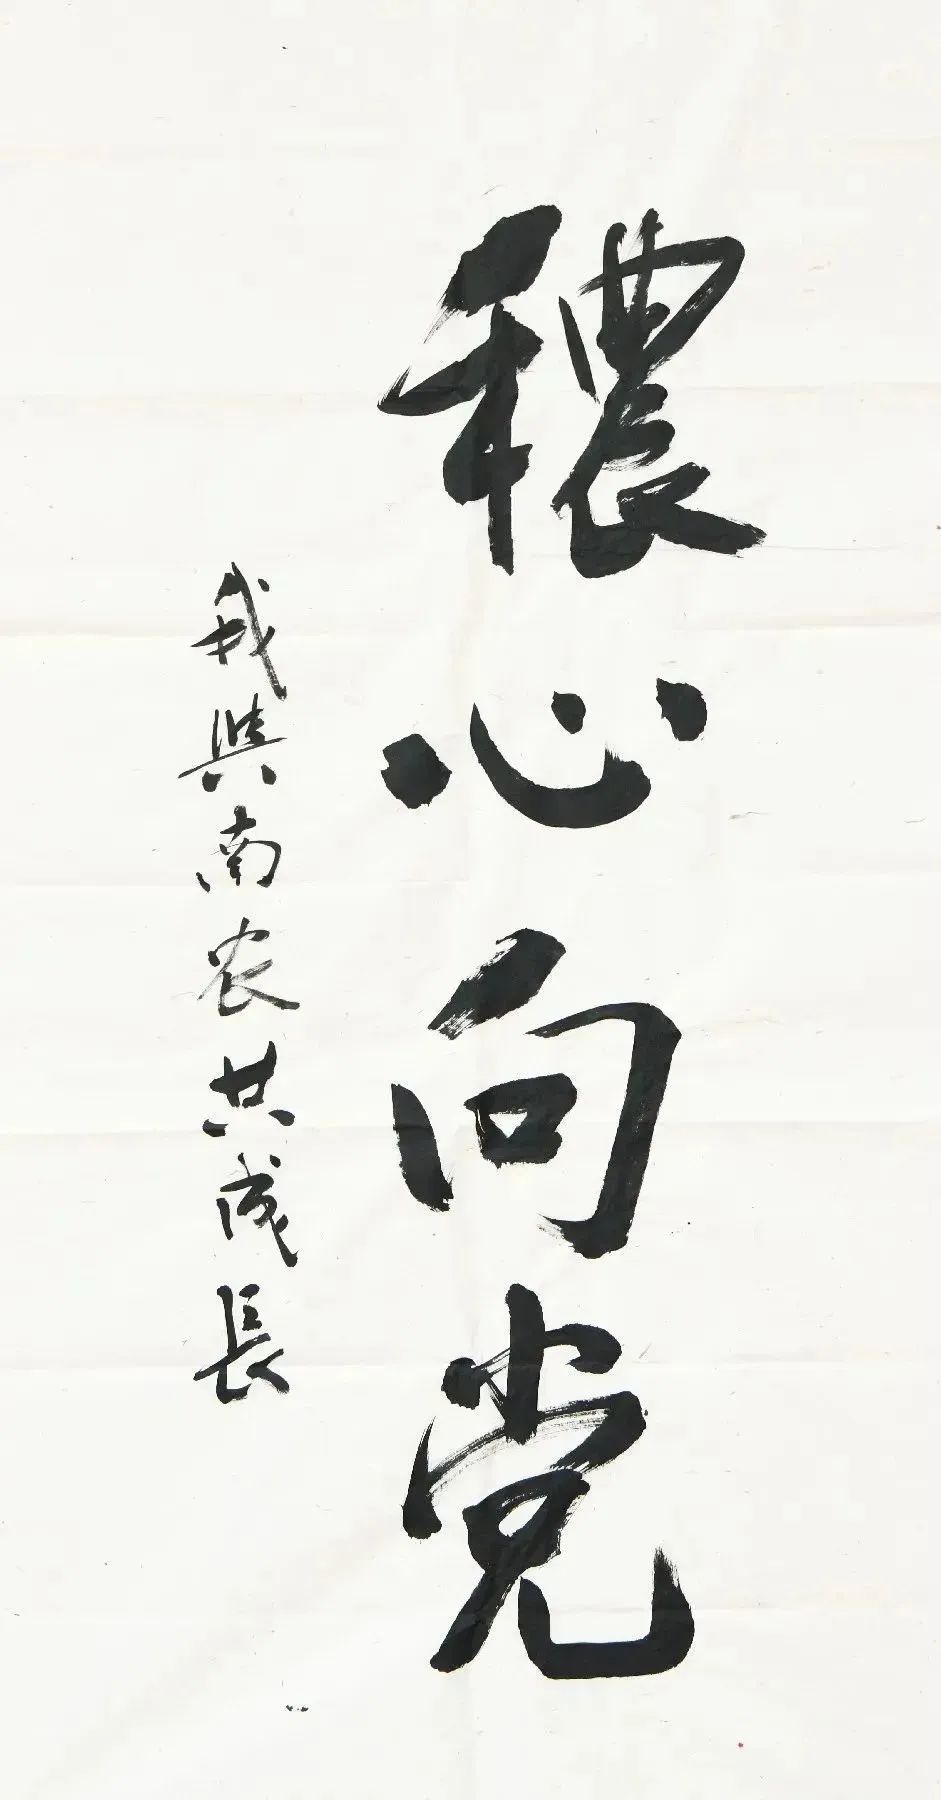 穠心向党
我與南农共成長